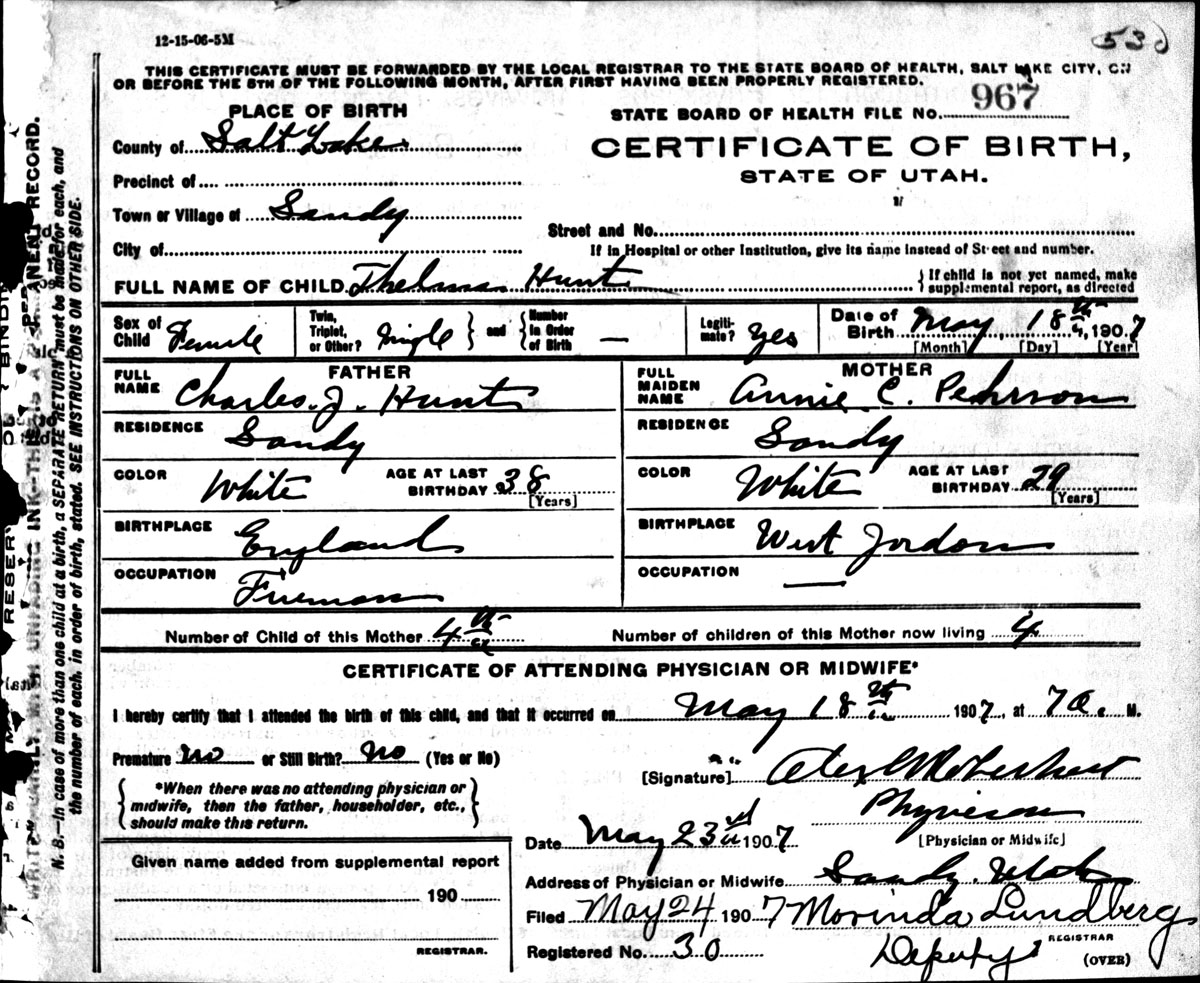 12-15-06-5M
THIS CERTIFICATE MUST BE FORWARDED BY THE LOCAL REGISTRAR TO THE STATE BOARD OF HEALTH, SALT LAKE CITY, ON
OR BEFORE THE 5TH OF THE FOLLOWING MONTH, AFTER FIRST HAVING BEEN PROPERLY REGISTERED.
PLACE OF BIRTH
County of Salt Lake
Precinct of
Town or Village of Sandy
City of
STATE BOARD OF HEALTH FILE NO. 967
CERTIFICATE OF BIRTH,
STATE OF UTAH.
Street and No.
If in Hospital or other Institution, give its name instead of Street and number.
FULL NAME OF CHILD Thelma Hunt
If child is not yet named, make
supplemental report, as directed
Sex of Child Female
Twin, Triplet, or Other? Single
and Number in Order of Birth —
Legitimate? Yes
Date of Birth May 18th, 1907
[Month] [Day] [Year]
FATHER
FULL NAME Charles. J. Hunt
RESIDENCE Sandy
COLOR White AGE AT LAST BIRTHDAY 38
[Years]
BIRTHPLACE England
OCCUPATION Fireman
MOTHER
FULL MAIDEN NAME Annie. C. Pehrson
RESIDENCE Sandy
COLOR White AGE AT LAST BIRTHDAY 29
[Years]
BIRTHPLACE West Jordon
OCCUPATION —
Number of Child of this Mother 4th
Number of children of this Mother now living 4
CERTIFICATE OF ATTENDING PHYSICIAN OR MIDWIFE*
I hereby certify that I attended the birth of this child, and that it occurred on May 18th 1907, at 7 a. M.
Premature no or Still Birth? no (Yes or No)
*When there was no attending physician or
midwife, then the father, householder, etc.,
should make this return.
[Signature]
Physician
[Physician or Midwife]
Date May 23rd 1907
Address of Physician or Midwife Sandy. Utah
Given name added from supplemental report
190
REGISTRAR.
Filed May 24 1907 Morinda Lundberg
REGISTRAR
Registered No. 30 Deputy
(OVER)
N. B.—In case of more than one child at a birth, a SEPARATE RETURN must be made for each, and
the number of each, in order of birth, stated. SEE INSTRUCTIONS ON OTHER SIDE.